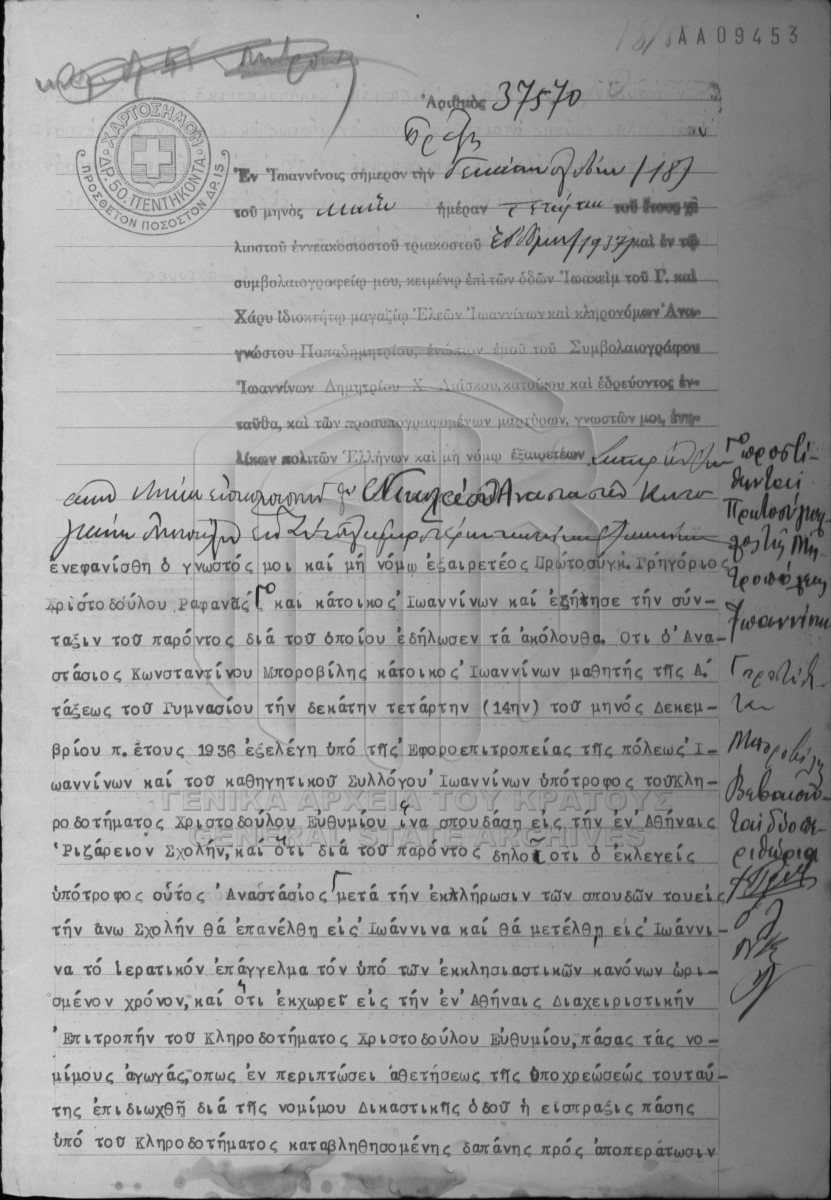 ΑΑ09453
Ἀριθμὸς 37570
Πρᾶξις
ΧΑΡΤΟΣΗΜΟΝ
ΔΡ. 50. ΠΕΝΤΗΚΟΝΤΑ
ΠΡΟΣΘΕΤΟΝ ΠΟΣΟΣΤΟΝ ΔΡ. 15
Ἐν Ἰωαννίνοις σήμερον τὴν δεκάτην ὀγδόην (18)
τοῦ μηνὸς Μαΐου ἡμέραν τοῦ ἔτους χι-
λιοστοῦ ἐννεακοσιοστοῦ τριακοστοῦ ἑβδόμου (1937) καὶ ἐν τῷ
συμβολαιογραφείῳ μου, κειμένῳ ἐπὶ τῶν ὁδῶν Ἰωακεὶμ τοῦ Γ. καὶ
Χάρυ ἰδιοκτήτῳ μαγαζίῳ Ἐλεῶν Ἰωαννίνων καὶ κληρονόμων Ἀνα-
γνώστου Παπαδημητρίου, ἐνώπιον ἐμοῦ τοῦ Συμβολαιογράφου
Ἰωαννίνων Δημητρίου Χ. κατοίκου καὶ ἑδρεύοντος ἐν-
ταῦθα, καὶ τῶν προσυπογραφομένων μαρτύρων, γνωστῶν μοι, ἐνη-
λίκων πολιτῶν Ἑλλήνων καὶ μὴ νόμῳ ἐξαιρετέων
Ἀναστασίου
ενεφανίσθη ὁ γνωστός μοι καί μή νόμῳ ἐξαιρετέος Πρωτοσύγκ. Γρηγόριος
Χριστοδούλου Ραφανᾶς καί κάτοικος Ἰωαννίνων καί ἐζήτησε τήν σύν-
ταξιν τοῦ παρόντος διά τοῦ ὁποίου ἐδήλωσεν τά ἀκόλουθα. Οτι ὁ Ἀνα-
στάσιος Κωνσταντίνου Μποροβίλης κάτοικος Ἰωαννίνων μαθητής τῆς Α.
τάξεως τοῦ Γυμνασίου τήν δεκάτην τετάρτην (14ην) τοῦ μηνός Δεκεμ-
βρίου π. ἔτους 1936 ἐξελέγη ὑπό τῆς Ἐφοροεπιτροπείας τῆς πόλεως Ἰ-
ωαννίνων καί τοῦ καθηγητικοῦ Συλλόγου Ἰωαννίνων ὑπότροφος τοῦ Κλη-
ροδοτήματος Χριστοδούλου Εὐθυμίου ἵνα σπουδάσῃ εἰς τήν ἐν Ἀθήναις
Ριζάρειον Σχολήν, καί ὅτι διά τοῦ παρόντος δηλοῖ οτι ὁ ἐκλεγείς
ὑπότροφος οὗτος Ἀναστάσιος μετά τήν ἐκπλήρωσιν τῶν σπουδῶν του εἰς
τήν ἄνω Σχολήν θά ἐπανέλθῃ εἰς Ἰωάννινα καί θά μετέλθῃ εἰς Ἰωάννι-
να τό ἱερατικόν ἐπάγγελμα τόν ὑπό τῶν ἐκκλησιαστικῶν κανόνων ὡρι-
σμένον χρόνον, καί ὅτι ἐκχωρεῖ εἰς τήν ἐν Ἀθήναις Διαχειριστικήν
Ἐπιτροπήν τοῦ Κληροδοτήματος Χριστοδούλου Εὐθυμίου, πάσας τάς νο-
μίμους ἀγωγάς, οπως ἐν περιπτώσει ἀθετήσεως τῆς ὑποχρεώσεώς του ταύ-
της ἐπιδιωχθῇ διά τῆς νομίμου Δικαστικῆς ὁδοῦ ἡ εἴσπραξις πάσης
ὑπό τοῦ Κληροδοτήματος καταβληθησομένης δαπάνης πρός ἀποπεράτωσιν
προστί-
θενται
Πρωτοσύγκελ-
λος τῆς Μη-
τροπόλεως
Ἰωαννίνων
προστίθε-
ται
Μποροβίλης
Βεβαιοῦν-
ται δύο πε-
ριθώρια
ΓΕΝΙΚΑ ΑΡΧΕΙΑ ΤΟΥ ΚΡΑΤΟΥΣ
GENERAL STATE ARCHIVES